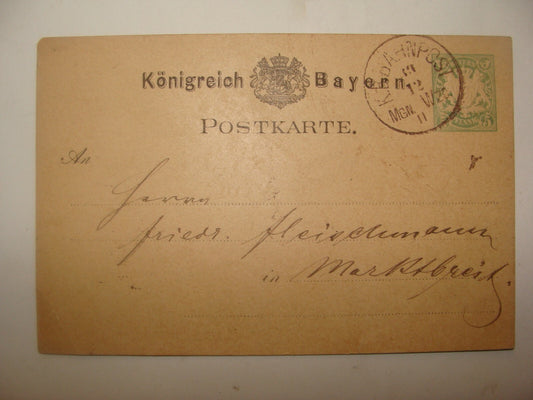 Königreich Bayern.
K.B. BAHNPOST
13
12
MGN. VI
II
POSTKARTE.
An
Herrn
Friedr. Fleischmann
in Marktbreit.